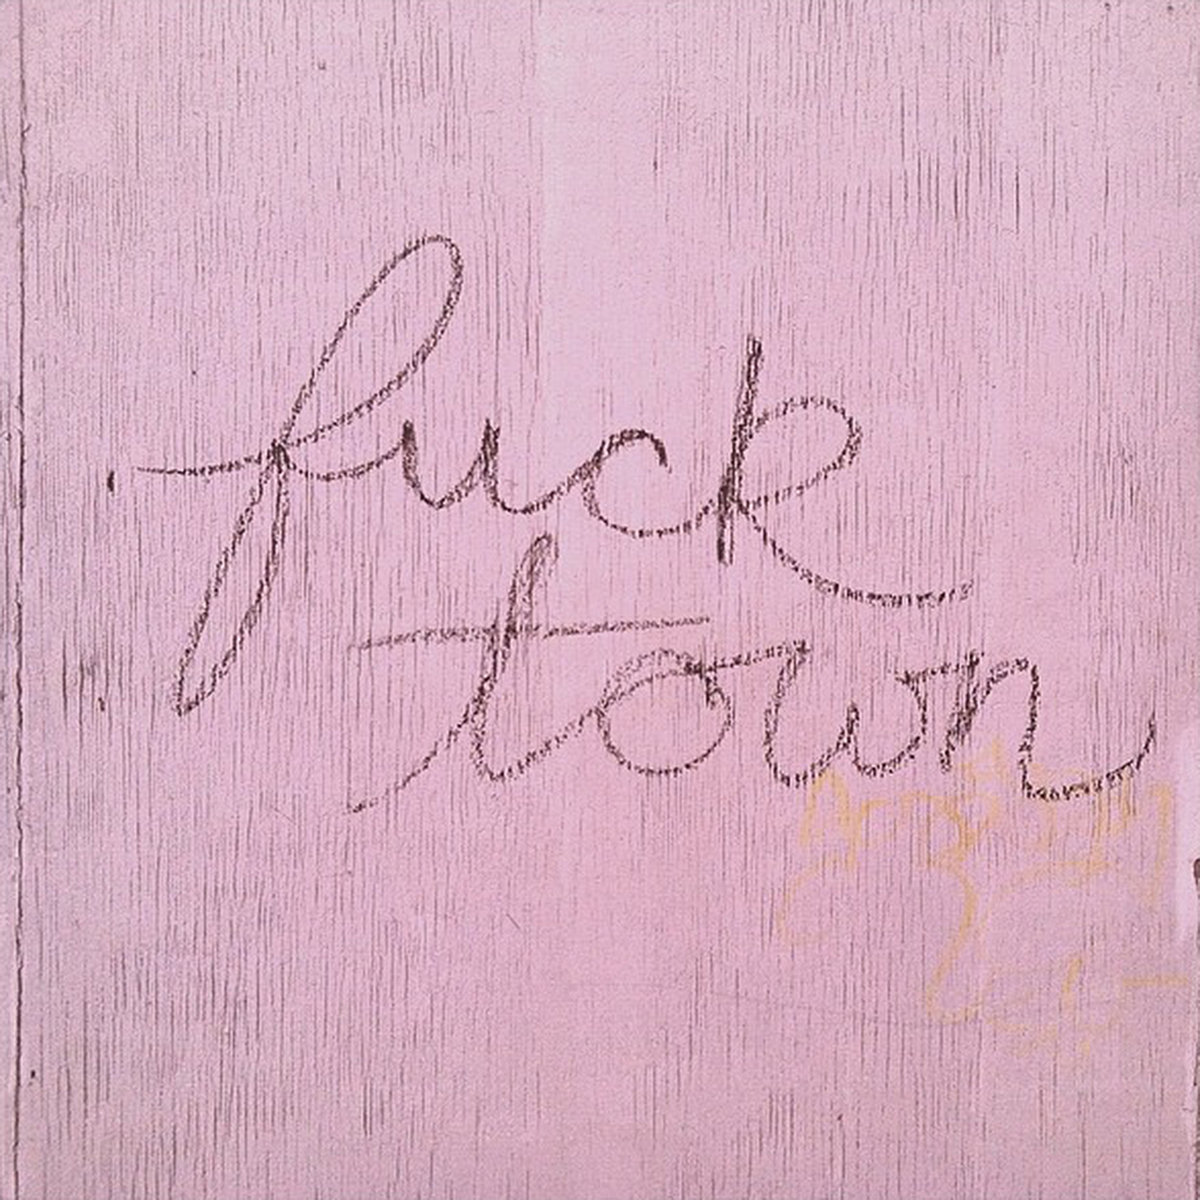 fuck
town